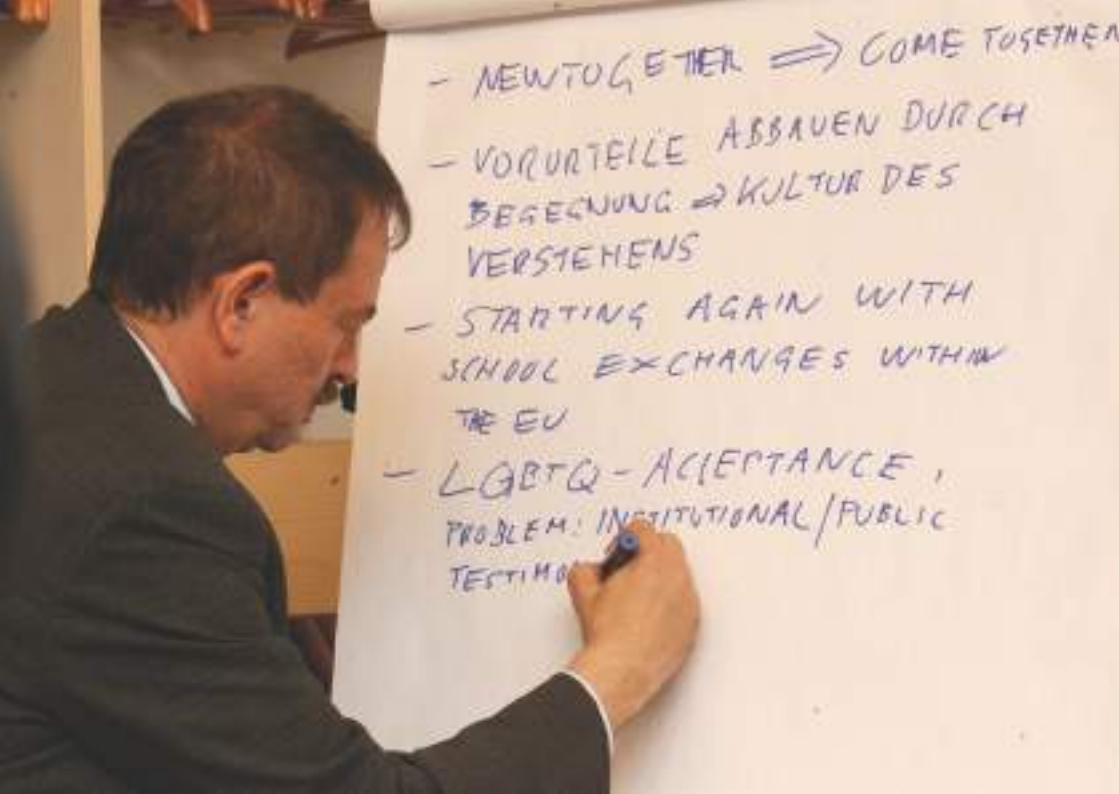 - NEWTOGETHER ⇒ COME TOGETHER
- VORURTEILE ABBAUEN DURCH
BEGEGNUNG ⇒ KULTUR DES
VERSTEHENS
- STARTING AGAIN WITH
SCHOOL EXCHANGES WITHIN
THE EU
- LGBTQ - ACCEPTANCE,
PROBLEM: INSTITUTIONAL/PUBLIC